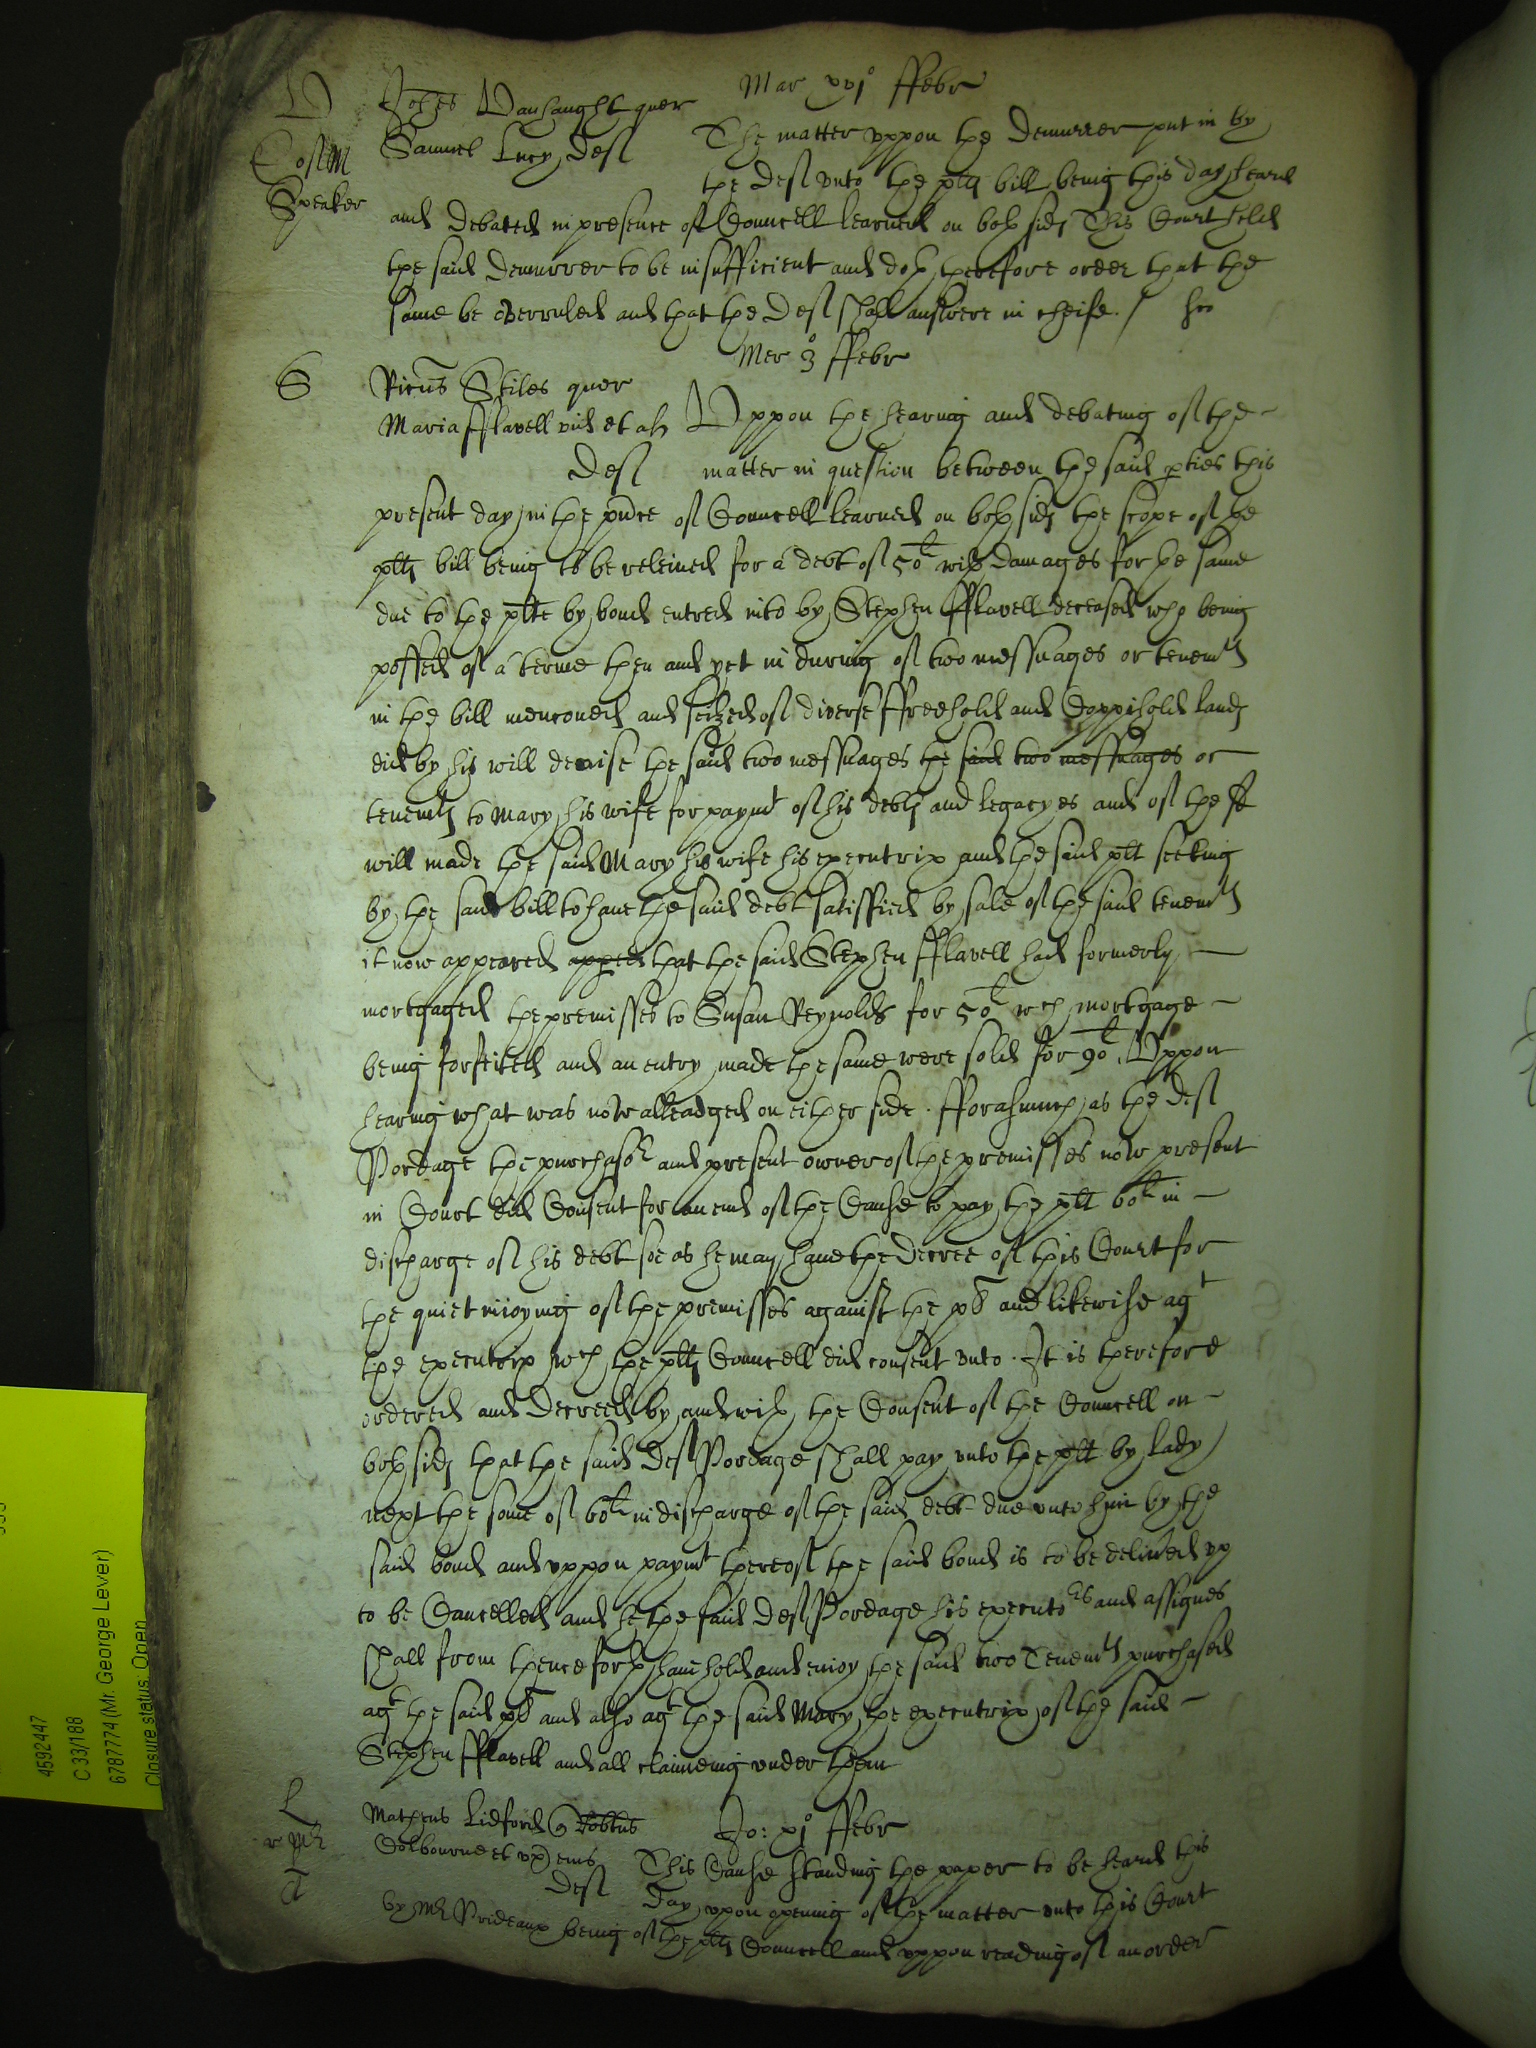 Mar xvj° ffebr
V Johes Vanhaught quer
Samuel Lucy deft The matter vppon the demurrer put in by
Speaker the deft vnto the plts bill being this day heard
and debated in presence of Councell learned on both sids This Court held
the said demurrer to be insufficient and doth therefore order that the
same be overruled and that the deft shall answere in cheife. /
Mer 3° ffebr
S Ricus Stiles quer
Maria fflavell vid et als Vppon the hearing and debating of the
deft matter in question between the said pties this
present day in the pnce of Councell learned on both sids the scope of the
plts bill being to be releived for a debt of 50l with damages for the same
due to the plte by bond entred into by Stephen fflavell deceased who being
possed of a terme then and yet in during of two messuages or tenemts
in the bill menconed and seized of diverse ffreehold and Coppihold lands
did by his will devise the said two messuages the said two messuages or
tenemts to Mary his wife for paymt of his debts and legacyes and of the sd
will made the said Mary his wife his executrix and the said plt seeking
by the said bill to have the said debt satisfied by sale of the said tenemts
it now appeared appred that the said Stephen fflavell had formerly
mortgaged the premisses to Susan Reynolds for 50l wch mortgage
being forfeited and an entry made the same were sold for 90l. Vppon
hearing what was now alleadged on either side. fforasmuch as the deft
Pordage the purchasor and present owner of the premisses now present
in Court did Consent for an end of the Cause to pay the plt 60l in
discharge of his debt soe as he may have the decree of this Court for
the quiet inioying of the premisses against the pl and likewise agt
the executrix wch the plts Councell did consent vnto. It is therefore
ordered and decreed by and with the Consent of the Councell on
both sids that the said deft Pordage shall pay vnto the plt by Lady
next the some of 60l in discharge of the said debt due vnto him by the
said bond and vppon paymt thereof the said bond is to be delived vp
to be Cancelled and he the said deft Pordage his executors and assignes
shall from thenceforth have hold and enioy the said two Tenemts purchased
agt the said pl and also agt the said Mary the executrix of the said
Stephen fflavell and all claimeing vnder them
L Matheus Lidford Robtus Jo: xj° ffebr
Colbourne et vx eius This Cause standing the paper to be heard this
deft day vpon opening of the matter vnto this Court
by Mr Prideaux being of the plts Councell and vppon reading of an order
4592447
C 33/188
6787774 (Mr. George Lever)
Closure status: Open